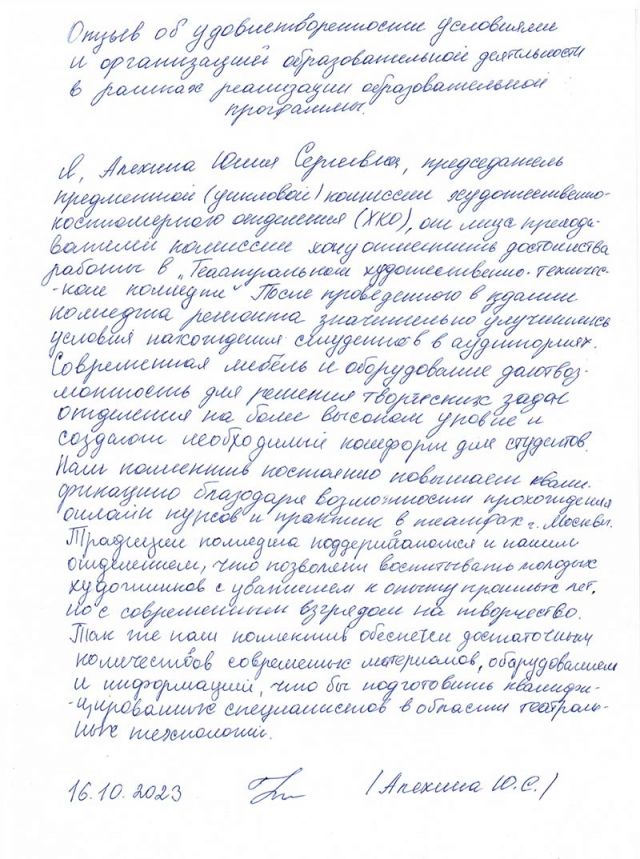 Отзыв об удовлетворенности условиями
и организацией образовательной деятельности
в рамках реализации образовательной
программы.
Я, Алехина Юлия Сергеевна, председатель
предметной (цикловой) комиссии художественно-
костюмерного отделения (ХКО), от лица препода-
вателей комиссии хочу отметить достоинства
работы в "Театральном художественно-техничес-
-ком колледже" После проведенного в здании
колледжа ремонта значительно улучшились
условия нахождения студентов в аудиториях.
Современная мебель и оборудование дают воз-
можность для решения творческих задач
отделения на более высоком уровне и
создают необходимый комфорт для студентов.
Наш коллектив постоянно повышает квали-
фикацию благодаря возможности прохождения
онлайн курсов и практик в театрах г. Москвы.
Традиции колледжа поддерживаются и нашим
отделением, что позволяет воспитывать молодых
художников с уважением к опыту прошлых лет,
но с современным взглядом на творчество.
Так же наш коллектив обеспечен достаточным
количеством современных материалов, оборудованием
и информацией, что бы подготовить квалифи-
-цированных специалистов в области театраль-
ных технологий.
16.10.2023 /Алехина Ю.С./